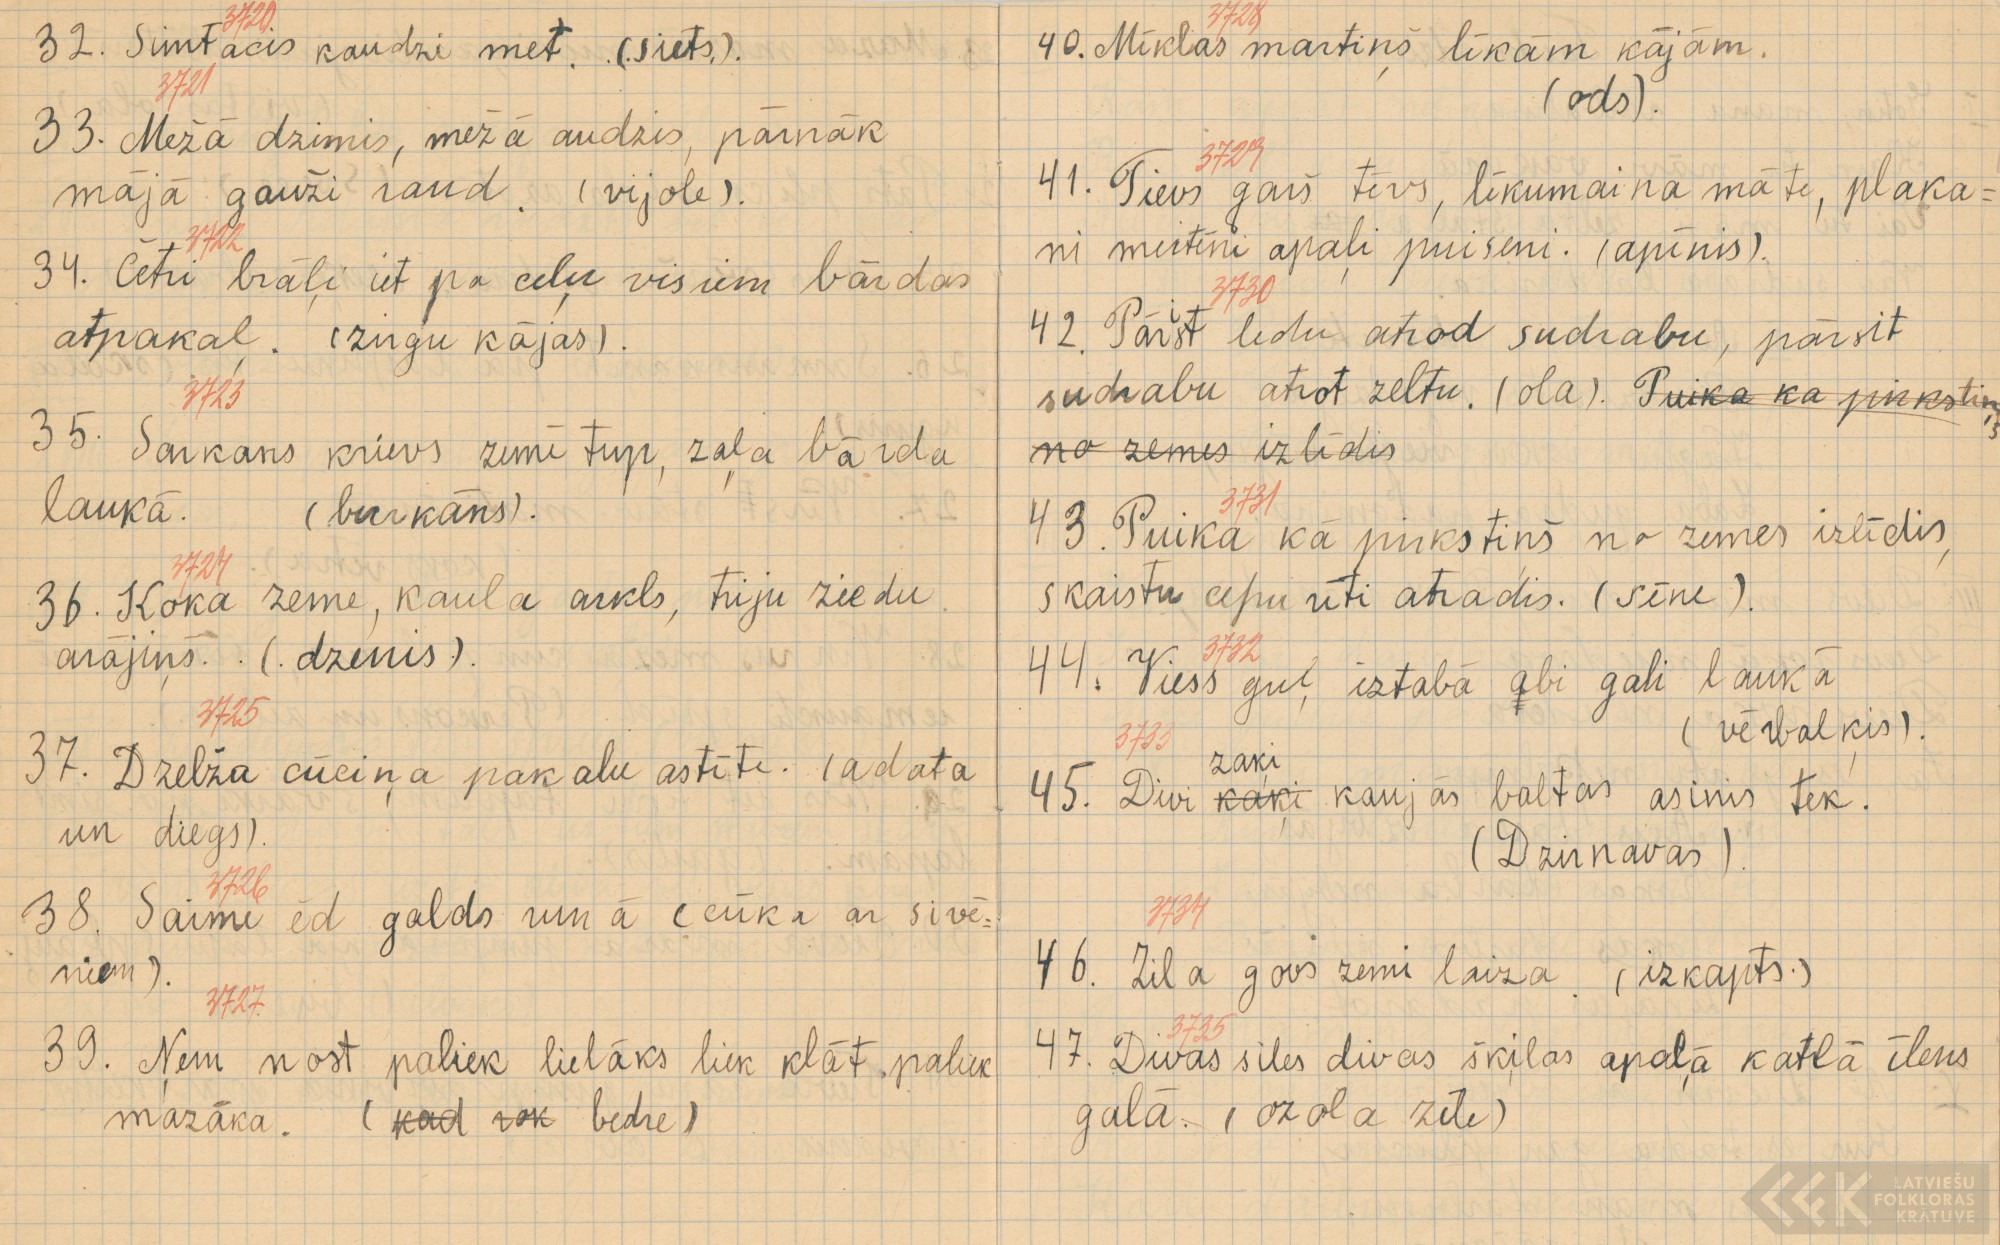 3720
32. Simtacis kaudzi met. (siets).
3721
33. Mežā dzimis, mežā audzis, pārnāk
mājā gauži raud. (vijole).
3722
34. Četri brāļi iet pa ceļu visiem bārdas
atpakaļ. (zirgu kājas).
3723
35. Sarkans krievs zemē tup, zaļa bārda
laukā. (burkāns).
3724
36. Koka zeme, kaula arkls, triju ziedu
arājiņš. (dzenis).
3725
37. Dzelža cūciņa pakalu astīte. (adata
un diegs).
3726
38. Saime ēd galds runā (cūka ar sivē=
niem).
3727.
39. Ņem nost paliek lielāks liek klāt paliek
mazāka. (kad rok bedre)
3728
40. Mīklas martiņš līkām kājām.
(ods).
3729
41. Tievs garš tēvs, līkumaina māte, plaka=
ni meitēni apaļi puisēni. (apīnis).
3730
42. Pārsit ledu atrod sudrabu, pārsit
sudrabu atrot zeltu. (ola). Puika ka pirkstiņš
no zemes izlīdis
3731
43. Puika kā pirkstiņš no zemes izlīdis,
skaistu cepurīti atradis. (sēne).
3732
44. Viess guļ iztabā abi gali laukā
(vērbalķis).
3733
zaķi
45. Divi kaķi kaujās baltas asinis tek.
(Dzirnavas).
3734
46. Zila govs zemi laiza. (izkapts.)
3735
47. Divas siles divas šķilas apaļā katlā īlens
galā. (ozola zīle)
LATVIEŠU
FOLKLORAS
KRĀTUVE